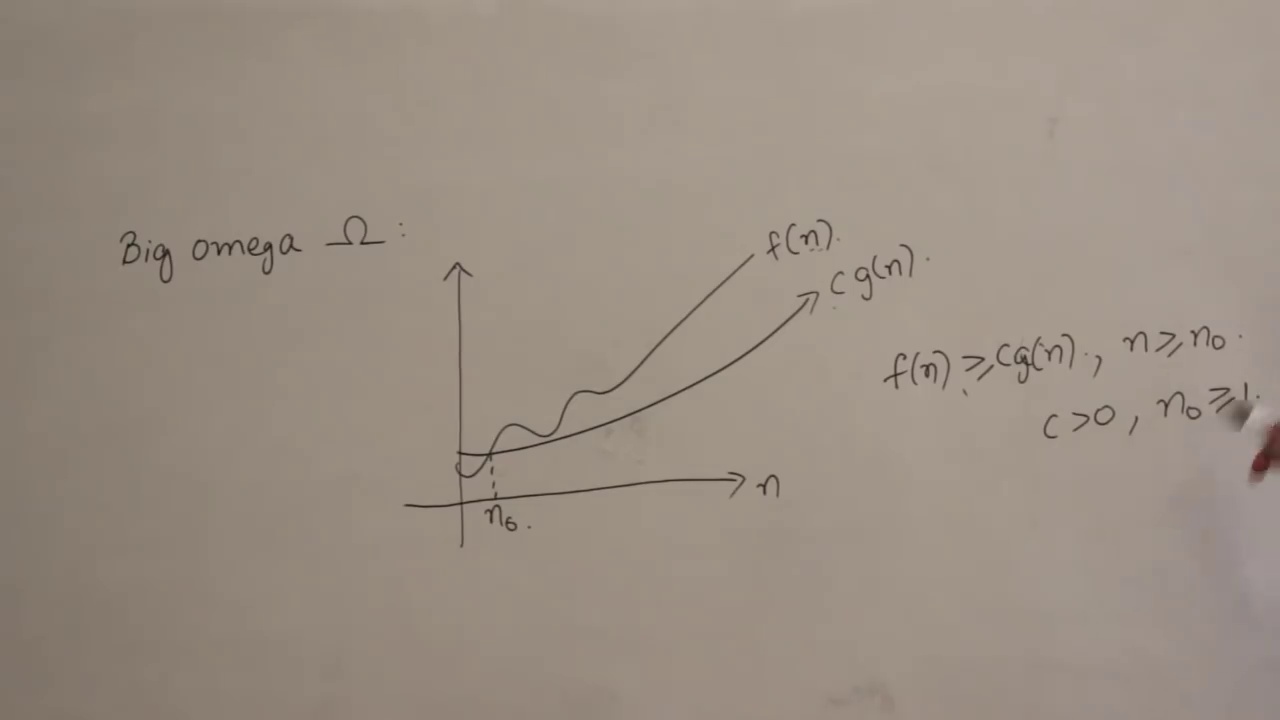 Big omega Ω :
f(n).
cg(n).
f(n) ≥ cg(n)., n ≥ n₀.
c > 0, n₀ ≥ 1.
n
n₀.